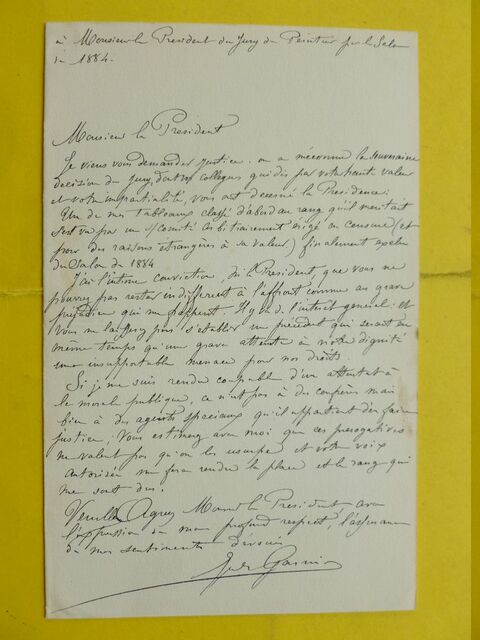 à Monsieur le President du Jury de Peinture pour le Salon
de 1884.
Monsieur le President
Je viens vous demander justice. on a méconnu la souveraine
décision du Jury, dont vos collegues qui dès par votre haute valeur
et votre impartialité, vous ont decerné la Présidence.
Un de mes tableaux classé d'abord au rang qu'il méritait
s'est vu par un Comité arbitrairement érigé en censure (et
pour des raisons etrangères à sa valeur) finalement
du Salon de 1884
J'ai l'intime conviction, M. le President, que vous ne
pourrez pas rester indifférent à l'affront comme au grave
préjudice qui me frappent. Il y va de l'interêt general; et
vous ne laisserez pas s'établir un précédent qui serait en
même temps qu'une grave atteinte à notre dignité
une insupportable menace pour nos droits.
Si je me suis rendu coupable d'un attentat à
la morale publique, ce n'est pas à des confrères mais
bien à des agents speciaux qu'il appartient d'en faire
justice; Vous estimerez avec moi que ces prerogatives
ne valent pas qu'on les usurpe et votre voix
autorisée me fera rendre la place et le rang qui
me sont dus.
Veuillez Agréer Monsieur le President, avec
l'expression de mon profond respect, l'assurance
de mes sentiments dévoués
Jules Garnier